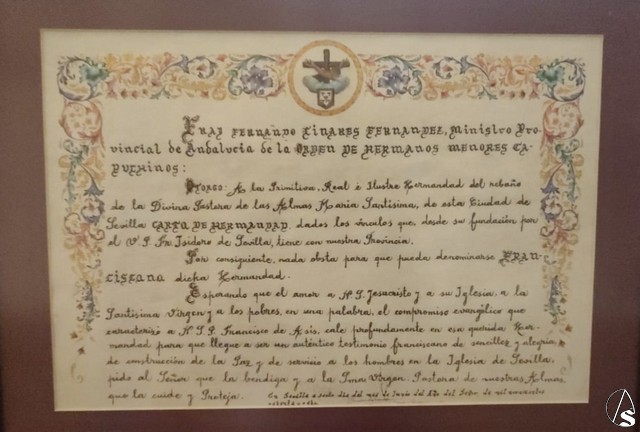 FRAY FERNANDO LINARES FERNANDEZ, Ministro Pro-
vincial de Andalucía de la ORDEN DE HERMANOS MENORES CA-
PUCHINOS:
OTORGO: A la Primitiva, Real é Ilustre Hermandad del rebaño
de la Divina Pastora de las Almas María Santísima, de esta Ciudad de
Sevilla CARTA DE HERMANDAD, dados los vínculos que, desde su fundación por
el V. P. Fr. Isidoro de Sevilla, tiene con nuestra Provincia.
Por consiguiente, nada obsta para que pueda denominarse FRAN-
CISCANA dicha Hermandad.
Esperando que el amor a N. S. Jesucristo y a su Iglesia, a la
Santísima Virgen y a los pobres, en una palabra, el compromiso evangélico que
caracterizó a N. S. P. Francisco de Asís, cale profundamente en esa querida Her-
mandad para que llegue a ser un auténtico testimonio franciscano de sencillez y alegría,
de construcción de la Paz y de servicio a los hombres en la Iglesia de Sevilla,
pido al Señor que la bendiga y a la Stma. Virgen, Pastora de nuestras Almas,
que la cuide y Proteja.
En Sevilla a siete días del mes de Junio del Año del Señor de mil novecientos